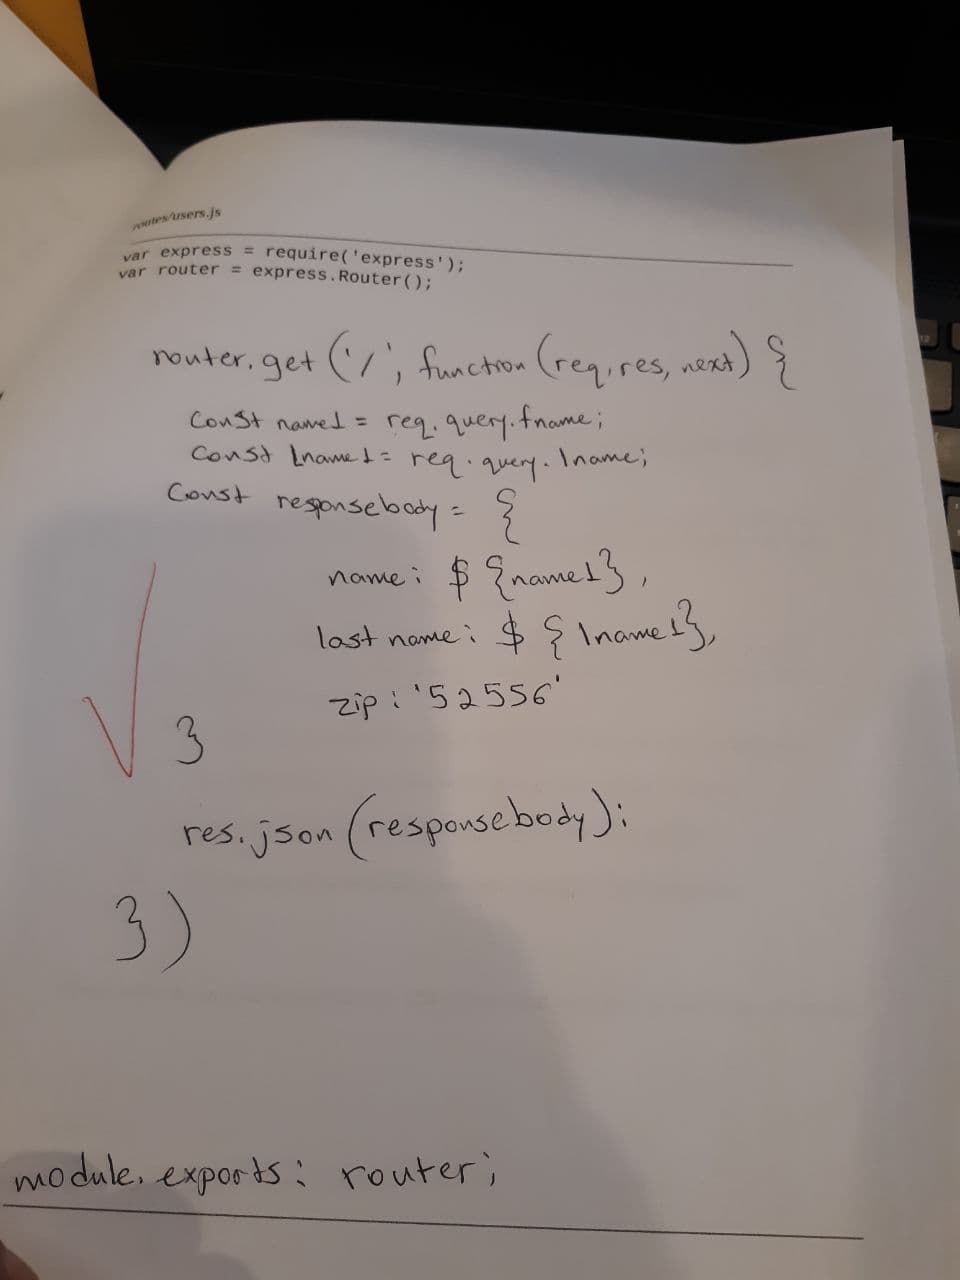 routes/users.js
var express = require('express');
var router = express.Router();
router.get('/', function(req, res, next) {
Const name1 = req.query.fname;
Const Lname1 = req.query.lname;
Const responsebody = {
name: ${name1},
last name: ${lname1},
zip: '52556'
}
res.json(responsebody);
})
module.exports: router;